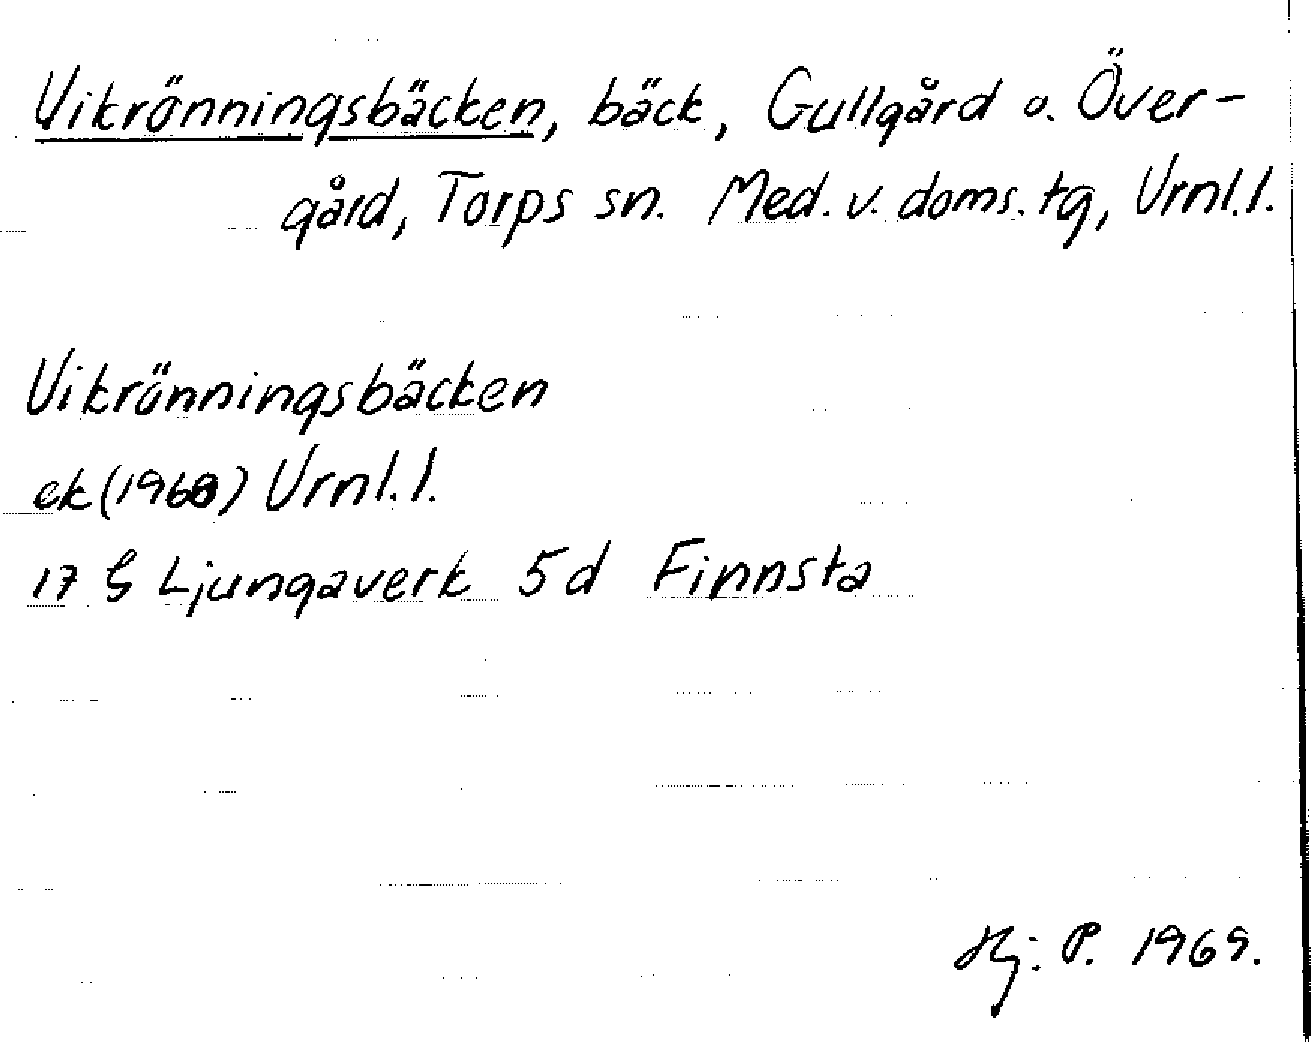 Vikrönningsbäcken, bäck, Gullgård o. Över-
gård, Torps sn. Med. v. doms. tg, Vrnl.l.
Vikrönningsbäcken
ek (1968) Vrnl.l.
17 G Ljungaverk 5d Finnsta
Hj. P. 1969.